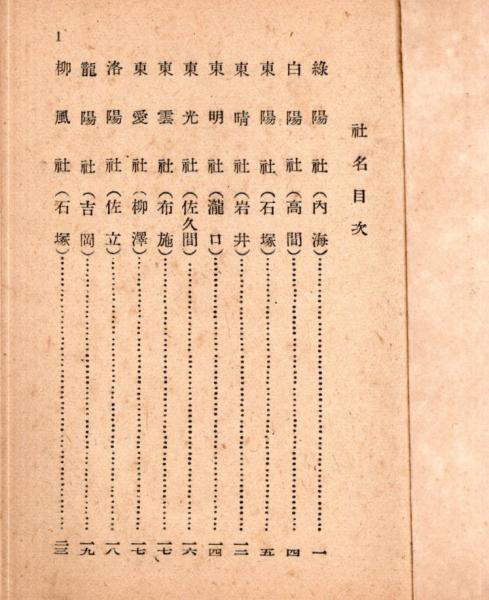 社名目次
綠陽社(內海)……一
白陽社(高間)……四
東陽社(石塚)……五
東晴社(岩井)……一二
東明社(瀧口)……一四
東光社(佐久間)……一六
東雲社(布施)……一七
東愛社(柳澤)……一七
洛陽社(佐立)……一八
龍陽社(吉岡)……一九
柳風社(石塚)……二三
1